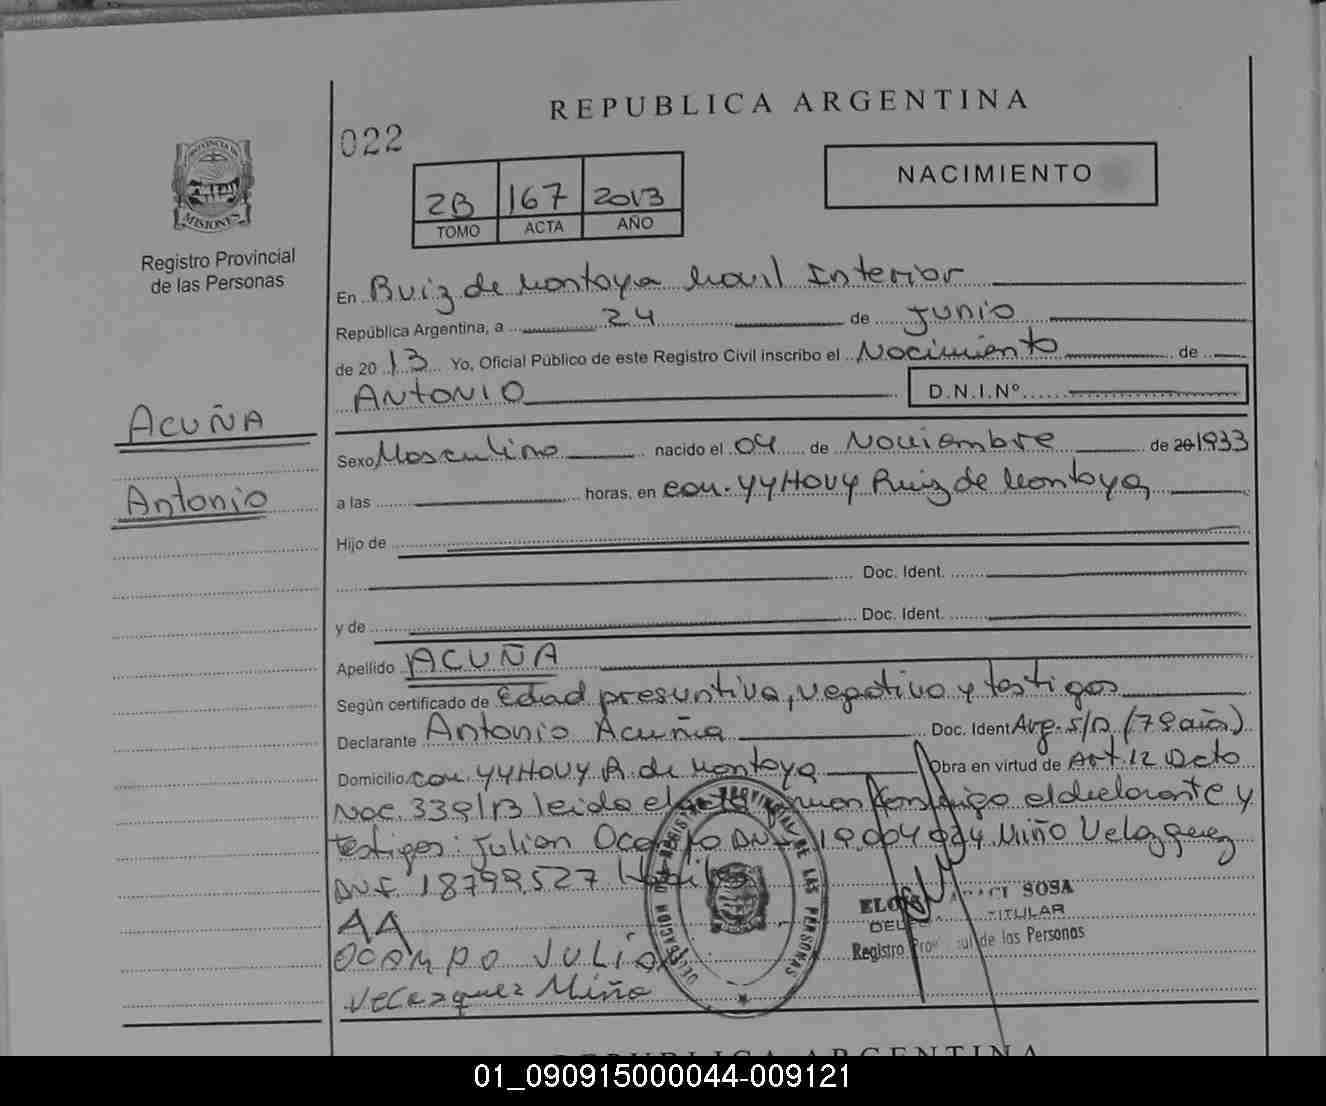 REPUBLICA ARGENTINA
022
NACIMIENTO
2B 167 2013
TOMO ACTA AÑO
PROVINCIA DE
MISIONES
Registro Provincial
de las Personas
En Ruiz de Montoya Movil Interior
República Argentina, a 24 de Junio
de 2013 Yo, Oficial Público de este Registro Civil inscribo el Nacimiento de
ANTONIO D.N.I.Nº
ACUÑA
Sexo Masculino nacido el 04 de Noviembre de 20 1933
Antonio
a las horas, en com. YYHOVY Ruiz de Montoya
Hijo de
Doc. Ident.
y de Doc. Ident.
Apellido ACUÑA
Según certificado de Edad presuntiva, negativo y testigos
Declarante Antonio Acuña Doc. Ident Arg. S/D (79 años)
Domicilio com. YYHOVY R. de Montoya Obra en virtud de Art. 12 Dcto
Nac. 339/13 leida el acta firman conmigo el declarante y
testigos: Julian Ocampo DNI 19.004.924 Miño Velazquez
DNI 18799527 Habiles
AA
OCAMPO JULIAN
Velazquez Miño
DELEGACION DEL REGISTRO PROVINCIAL DE LAS PERSONAS
SOSA
TITULAR
Registro de las Personas
REPUBLICA ARGENTINA
01_090915000044-009121